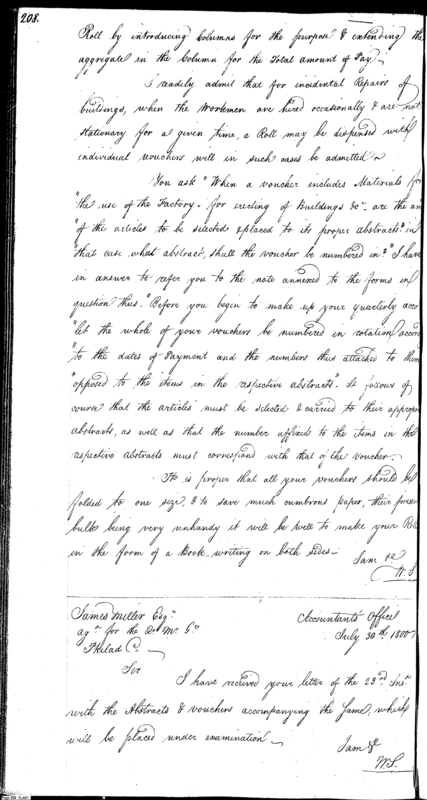 208.
Roll by introducing Columns for the purpose & extending the
aggregate in the Column for the Total amount of Pay.
I readily admit that for incidental Repairs of
buildings, when the Workmen are hired occasionally & are not
stationary for a given time, a Roll may be dispensed with
individual vouchers will in such cases be admitted
You ask "When a voucher includes Materials for
"the use of the Factory - for erecting of Buildings &c. are the am
"of the articles to be selected & placed to its proper abstract & in
"that case what abstract, shall the voucher be numbered in?" I have
in answer to refer you to the note annexed to the forms in
question thus. "Before you begin to make up your quarterly acco
"let the whole of your vouchers be numbered in rotation accord
"to the dates of Payment and the numbers thus attached to them
"opposed to the items in the respective abstracts". It follows of
course that the articles must be selected & carried to their appropri
abstracts, as well as that the number affixed to the items in the
respective abstracts must correspond with that of the voucher.
It is proper that all your vouchers should be
folded to one size, & to save much cumbrous paper, their present
bulk being very unhandy it will be well to make your Rolls
in the form of a Book - writing on both sides -
I am &c
W. S
James Miller Esqr.
agt. for the Dr. Mr. G.
Philad a.
Accountants Office
July 30th 1800
Sir
I have received your letter of the 23d. Inst
with the Abstracts & vouchers accompanying the same, which
will be placed under examination
I am &
W. S.